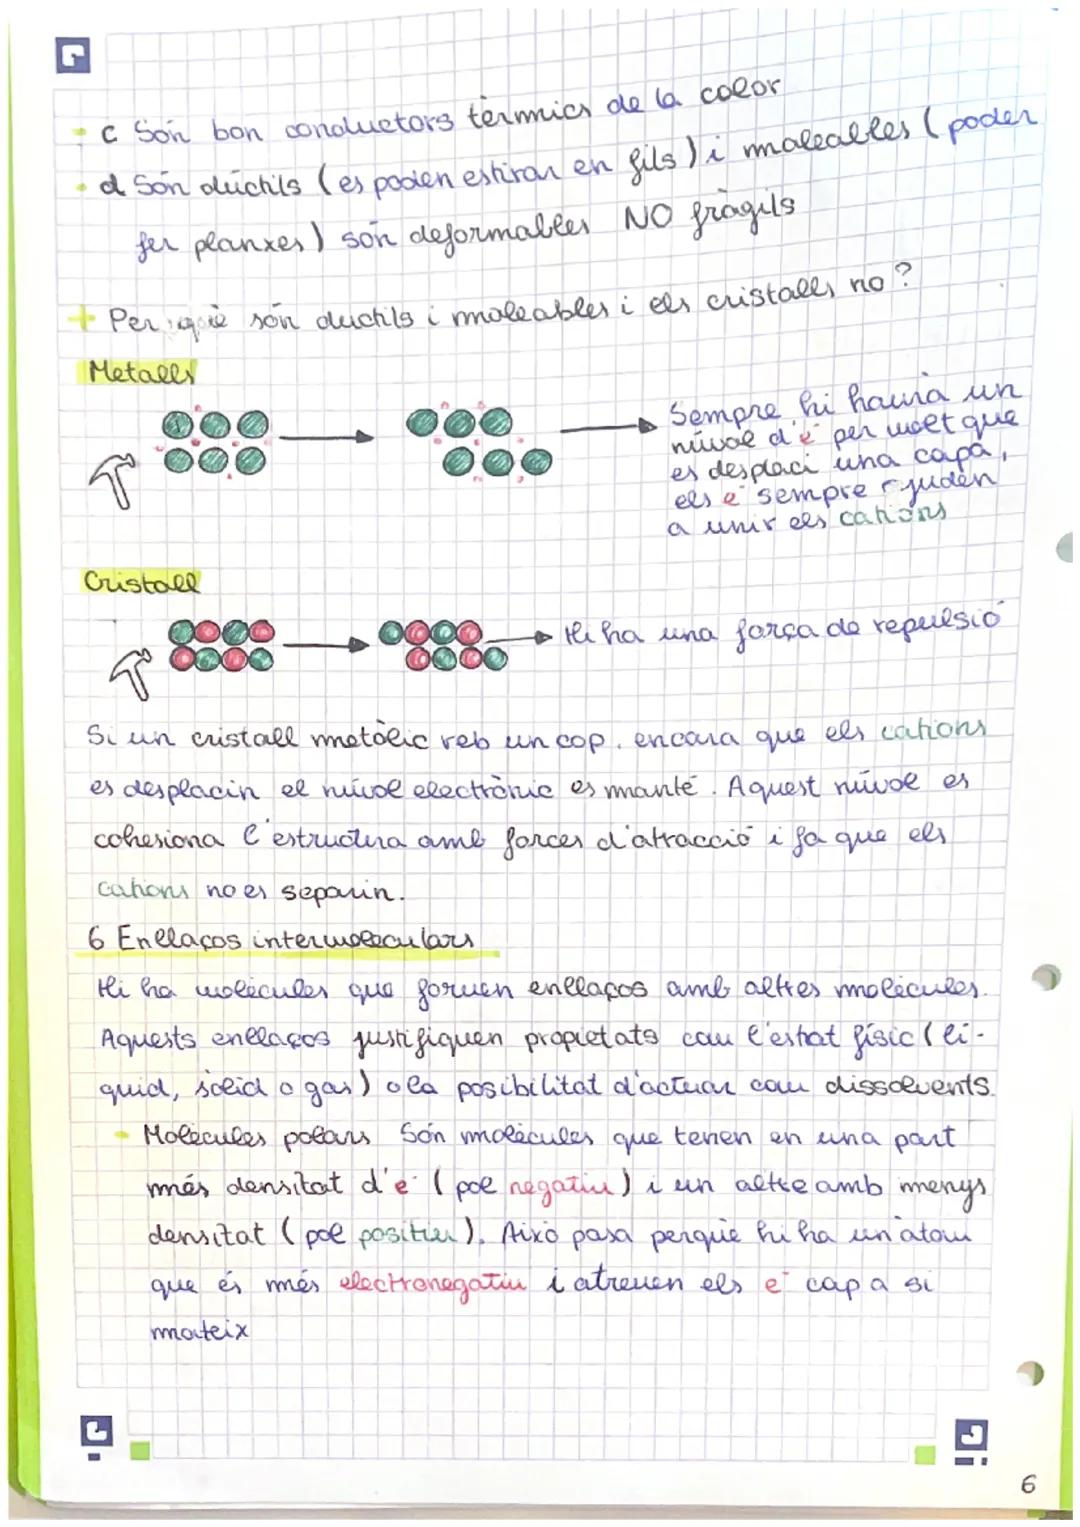 c Són bon conductors tèrmics de la color
d Són dúctils (es poden estirar en fils) i maleables (poden
fer planxes) són deformables NO fràgils
+ Per què són ductils i maleables i els cristalls no?
Metalls
Sempre hi haurà un
núvol d'e⁻ per molt que
es desplaci una capa,
els e⁻ sempre ajuden
a unir els cations
Cristall
Hi ha una força de repulsió
Si un cristall metàlic reb un cop, encara que els cations
es desplacin el núvol electrònic es manté. Aquest núvol es
cohesiona l'estructura amb forces d'atracció i fa que els
cations no es separin.
6 Enllaços intermoleculars
Hi ha molècules que formen enllaços amb altres molècules.
Aquests enllaços justifiquen propietats com l'estat físic (lí-
quid, sòlid o gas) o la posibilitat d'actuar com dissolvents.
Molècules polars Són molècules que tenen en una part
més densitat d'e⁻ (pol negatiu) i un altre amb menys
densitat (pol positiu). Això pasa perquè hi ha un àtom
que és més electronegatiu i atreuen els e⁻ cap a si
mateix
6